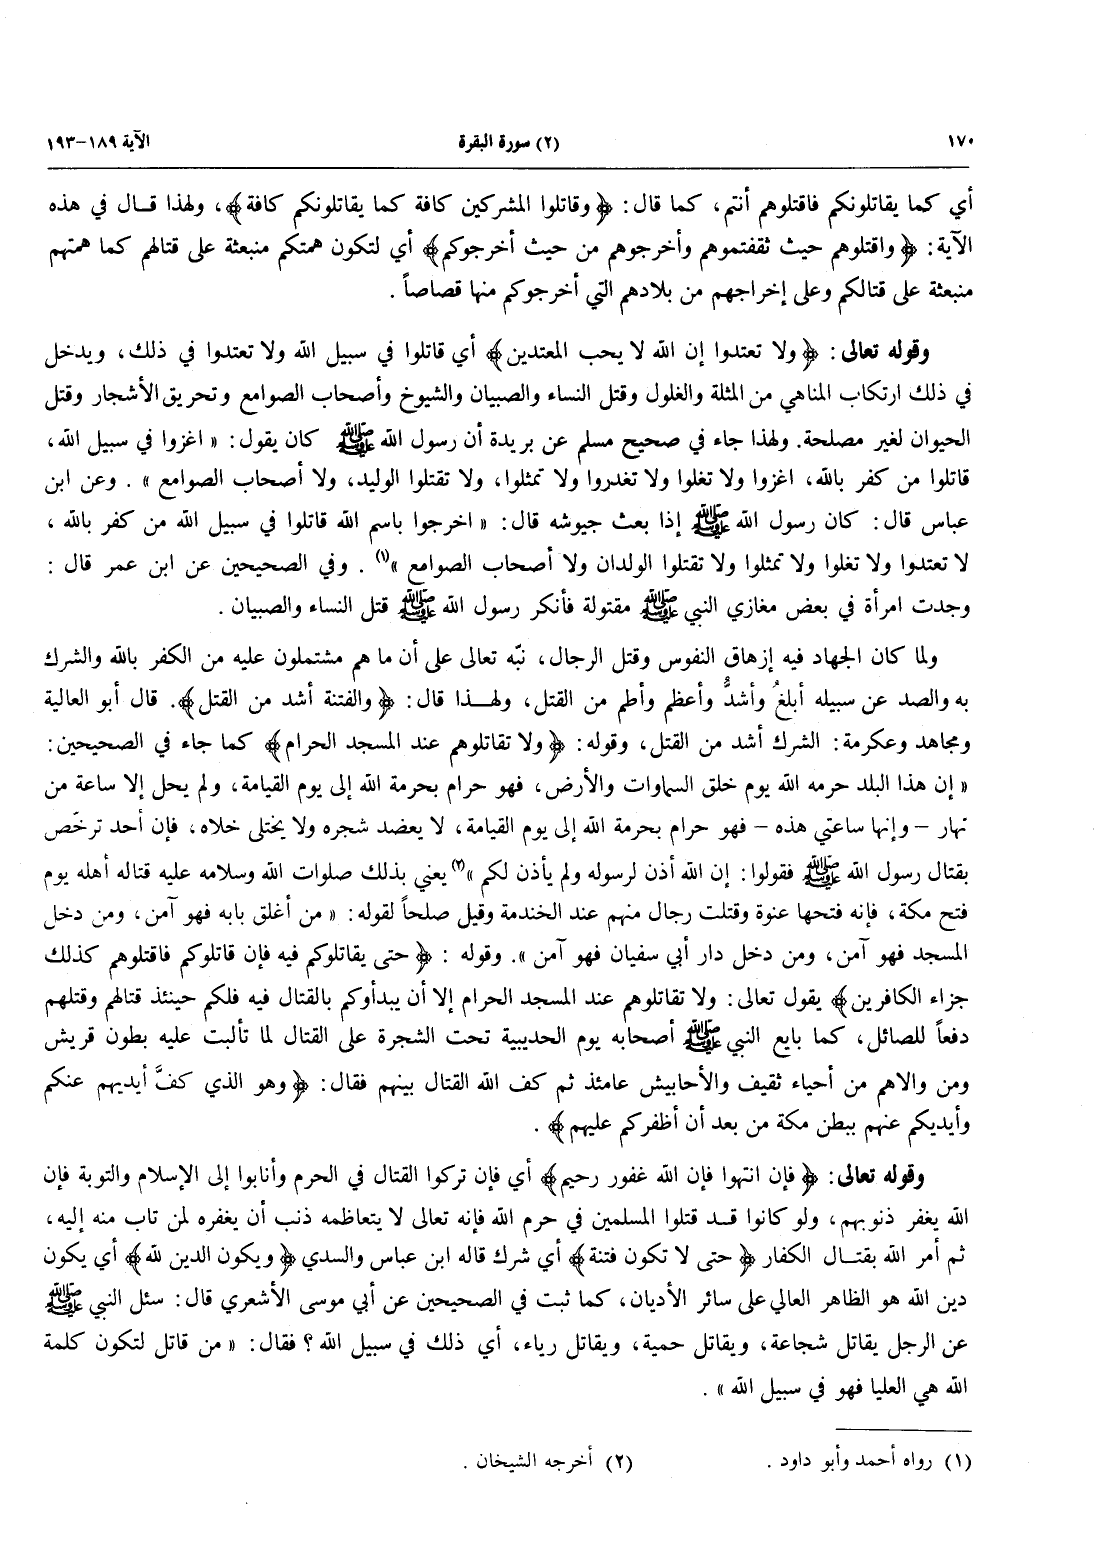 ١٧٠ (٢) سورة البقرة الآية ١٨٩-١٩٣
أي كما يقاتلونكم فاقتلوهم أنتم، كما قال: ﴿وقاتلوا المشركين كافة كما يقاتلونكم كافة﴾، ولهذا قال في هذه
الآية: ﴿واقتلوهم حيث ثقفتموهم وأخرجوهم من حيث أخرجوكم﴾ أي لتكون همتكم منبعثة على قتالهم كما همتهم
منبعثة على قتالكم وعلى إخراجهم من بلادهم التي أخرجوكم منها قصاصاً .
وقوله تعالى: ﴿ولا تعتدوا إن الله لا يحب المعتدين﴾ أي قاتلوا في سبيل الله ولا تعتدوا في ذلك، ويدخل
في ذلك ارتكاب المناهي من المثلة والغلول وقتل النساء والصبيان والشيوخ وأصحاب الصوامع وتحريق الأشجار وقتل
الحيوان لغير مصلحة. ولهذا جاء في صحيح مسلم عن بريدة أن رسول الله ﷺ كان يقول: « اغزوا في سبيل الله،
قاتلوا من كفر بالله، اغزوا ولا تغلوا ولا تغدروا ولا تمثلوا، ولا تقتلوا الوليد، ولا أصحاب الصوامع » . وعن ابن
عباس قال: كان رسول الله ﷺ إذا بعث جيوشه قال: « اخرجوا باسم الله قاتلوا في سبيل الله من كفر بالله ،
لا تعتدوا ولا تغلوا ولا تمثلوا ولا تقتلوا الولدان ولا أصحاب الصوامع »(١) . وفي الصحيحين عن ابن عمر قال :
وجدت امرأة في بعض مغازي النبي ﷺ مقتولة فأنكر رسول الله ﷺ قتل النساء والصبيان .
ولما كان الجهاد فيه إزهاق النفوس وقتل الرجال، نبّه تعالى على أن ما هم مشتملون عليه من الكفر بالله والشرك
به والصد عن سبيله أبلغُ وأشدُّ وأعظم وأطم من القتل، ولهـذا قال: ﴿والفتنة أشد من القتل﴾. قال أبو العالية
ومجاهد وعكرمة: الشرك أشد من القتل، وقوله: ﴿ولا تقاتلوهم عند المسجد الحرام﴾ كما جاء في الصحيحين:
« إن هذا البلد حرمه الله يوم خلق السماوات والأرض، فهو حرام بحرمة الله إلى يوم القيامة، ولم يحل إلا ساعة من
نهار – وإنها ساعتي هذه – فهو حرام بحرمة الله إلى يوم القيامة، لا يعضد شجره ولا يختلى خلاه، فإن أحد ترخّص
بقتال رسول الله ﷺ فقولوا: إن الله أذن لرسوله ولم يأذن لكم »(٢) يعني بذلك صلوات الله وسلامه عليه قتاله أهله يوم
فتح مكة، فإنه فتحها عنوة وقتلت رجال منهم عند الخندمة وقيل صلحاً لقوله: « من أغلق بابه فهو آمن، ومن دخل
المسجد فهو آمن، ومن دخل دار أبي سفيان فهو آمن ». وقوله : ﴿حتى يقاتلوكم فيه فإن قاتلوكم فاقتلوهم كذلك
جزاء الكافرين﴾ يقول تعالى: ولا تقاتلوهم عند المسجد الحرام إلا أن يبدأوكم بالقتال فيه فلكم حينئذ قتالهم وقتلهم
دفعاً للصائل، كما بايع النبي ﷺ أصحابه يوم الحديبية تحت الشجرة على القتال لما تألبت عليه بطون قريش
ومن والاهم من أحياء ثقيف والأحابيش عامئذ ثم كف الله القتال بينهم فقال: ﴿وهو الذي كفَّ أيديهم عنكم
وأيديكم عنهم ببطن مكة من بعد أن أظفركم عليهم﴾ .
وقوله تعالى: ﴿فإن انتهوا فإن الله غفور رحيم﴾ أي فإن تركوا القتال في الحرم وأنابوا إلى الإسلام والتوبة فإن
الله يغفر ذنوبهم، ولو كانوا قـد قتلوا المسلمين في حرم الله فإنه تعالى لا يتعاظمه ذنب أن يغفره لمن تاب منه إليه،
ثم أمر الله بقتـال الكفار ﴿حتى لا تكون فتنة﴾ أي شرك قاله ابن عباس والسدي ﴿ويكون الدين لله﴾ أي يكون
دين الله هو الظاهر العالي على سائر الأديان، كما ثبت في الصحيحين عن أبي موسى الأشعري قال: سئل النبي ﷺ
عن الرجل يقاتل شجاعة، ويقاتل حمية، ويقاتل رياء، أي ذلك في سبيل الله ؟ فقال: « من قاتل لتكون كلمة
الله هي العليا فهو في سبيل الله » .
(١) رواه أحمد وأبو داود . (٢) أخرجه الشيخان .